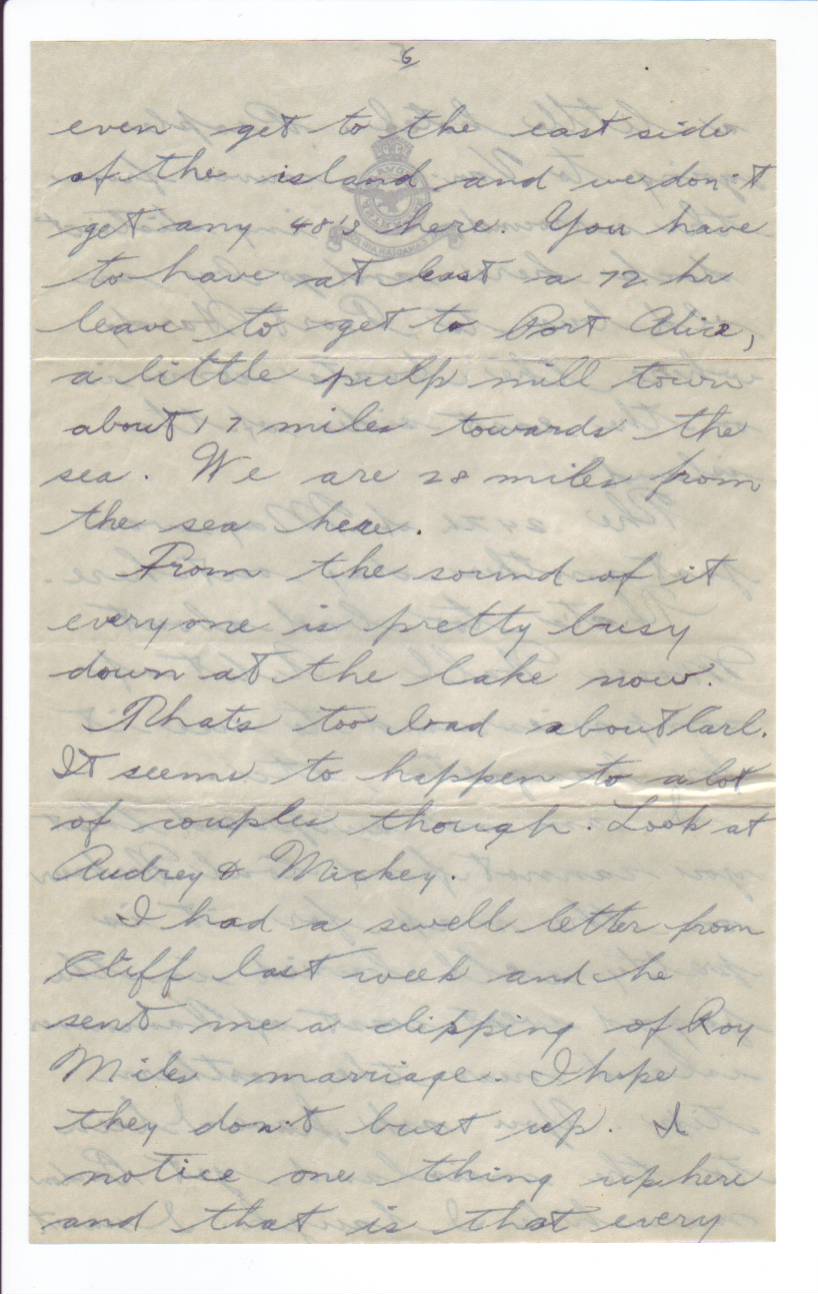 6
even get to the east side
of the island and we don't
get any 48's here. You have
to have at least a 72 hr
leave to get to Port Alice,
a little pulp mill town
about 17 miles towards the
sea. We are 28 miles from
the sea here.
From the sound of it
everyone is pretty busy
down at the lake now.
Thats too bad about Carl.
It seems to happen to a lot
of couples though. Look at
Audrey & Mickey.
I had a swell letter from
Cliff last week and he
sent me a clipping of Roy
Miles marriage. I hope
they don't bust up. I
notice one thing up here
and that is that every